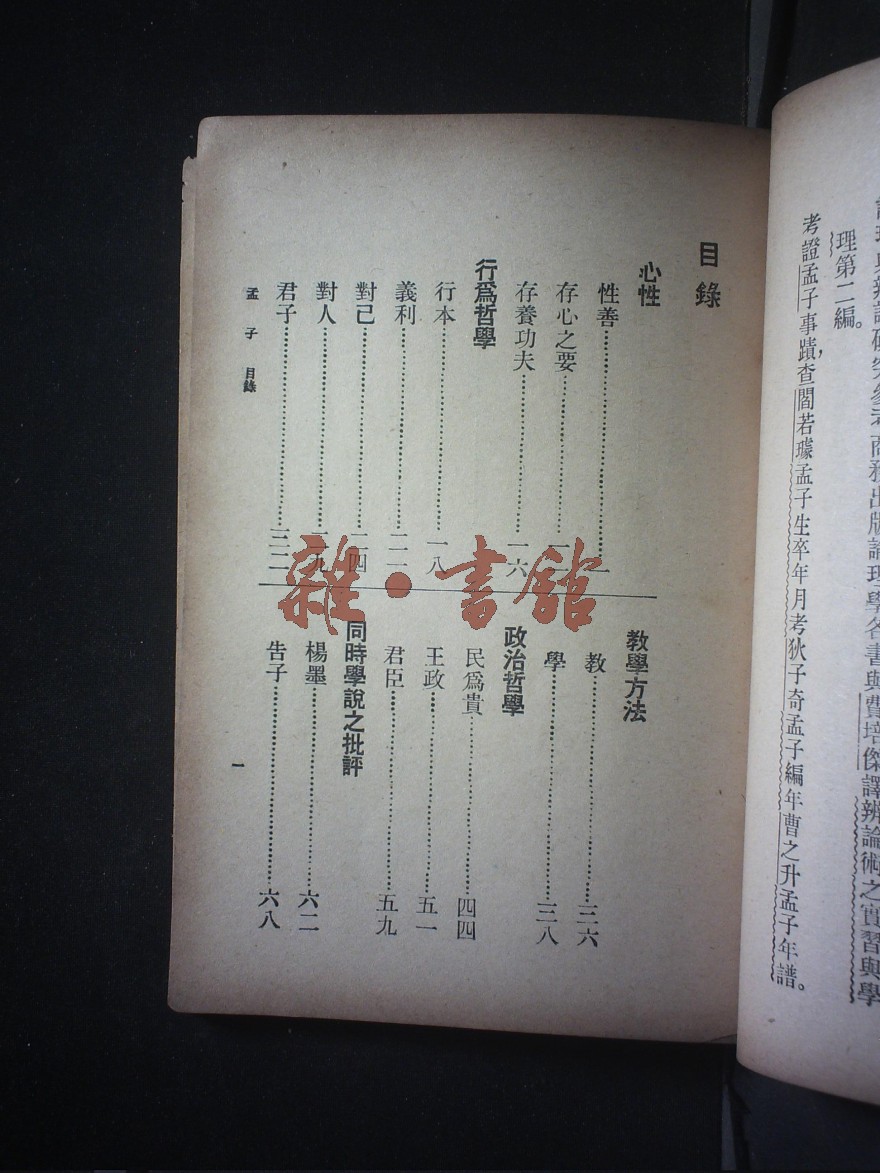 商務出版論理學各書與費培傑譯辨論術之實習與學
理第二編。
考證孟子事蹟，查閻若璩孟子生卒年月考狄子奇孟子編年曹之升孟子年譜。
目錄
心性
性善
存心之要
存養功夫……一六
行爲哲學
行本……一八
義利
對己……二四
對人……二九
君子……三二
教學方法
教……三六
學……三八
政治哲學
民爲貴……四四
王政……五一
君臣……五九
同時學說之批評
楊墨……六二
告子……六八
孟子 目錄
一
雜·書館